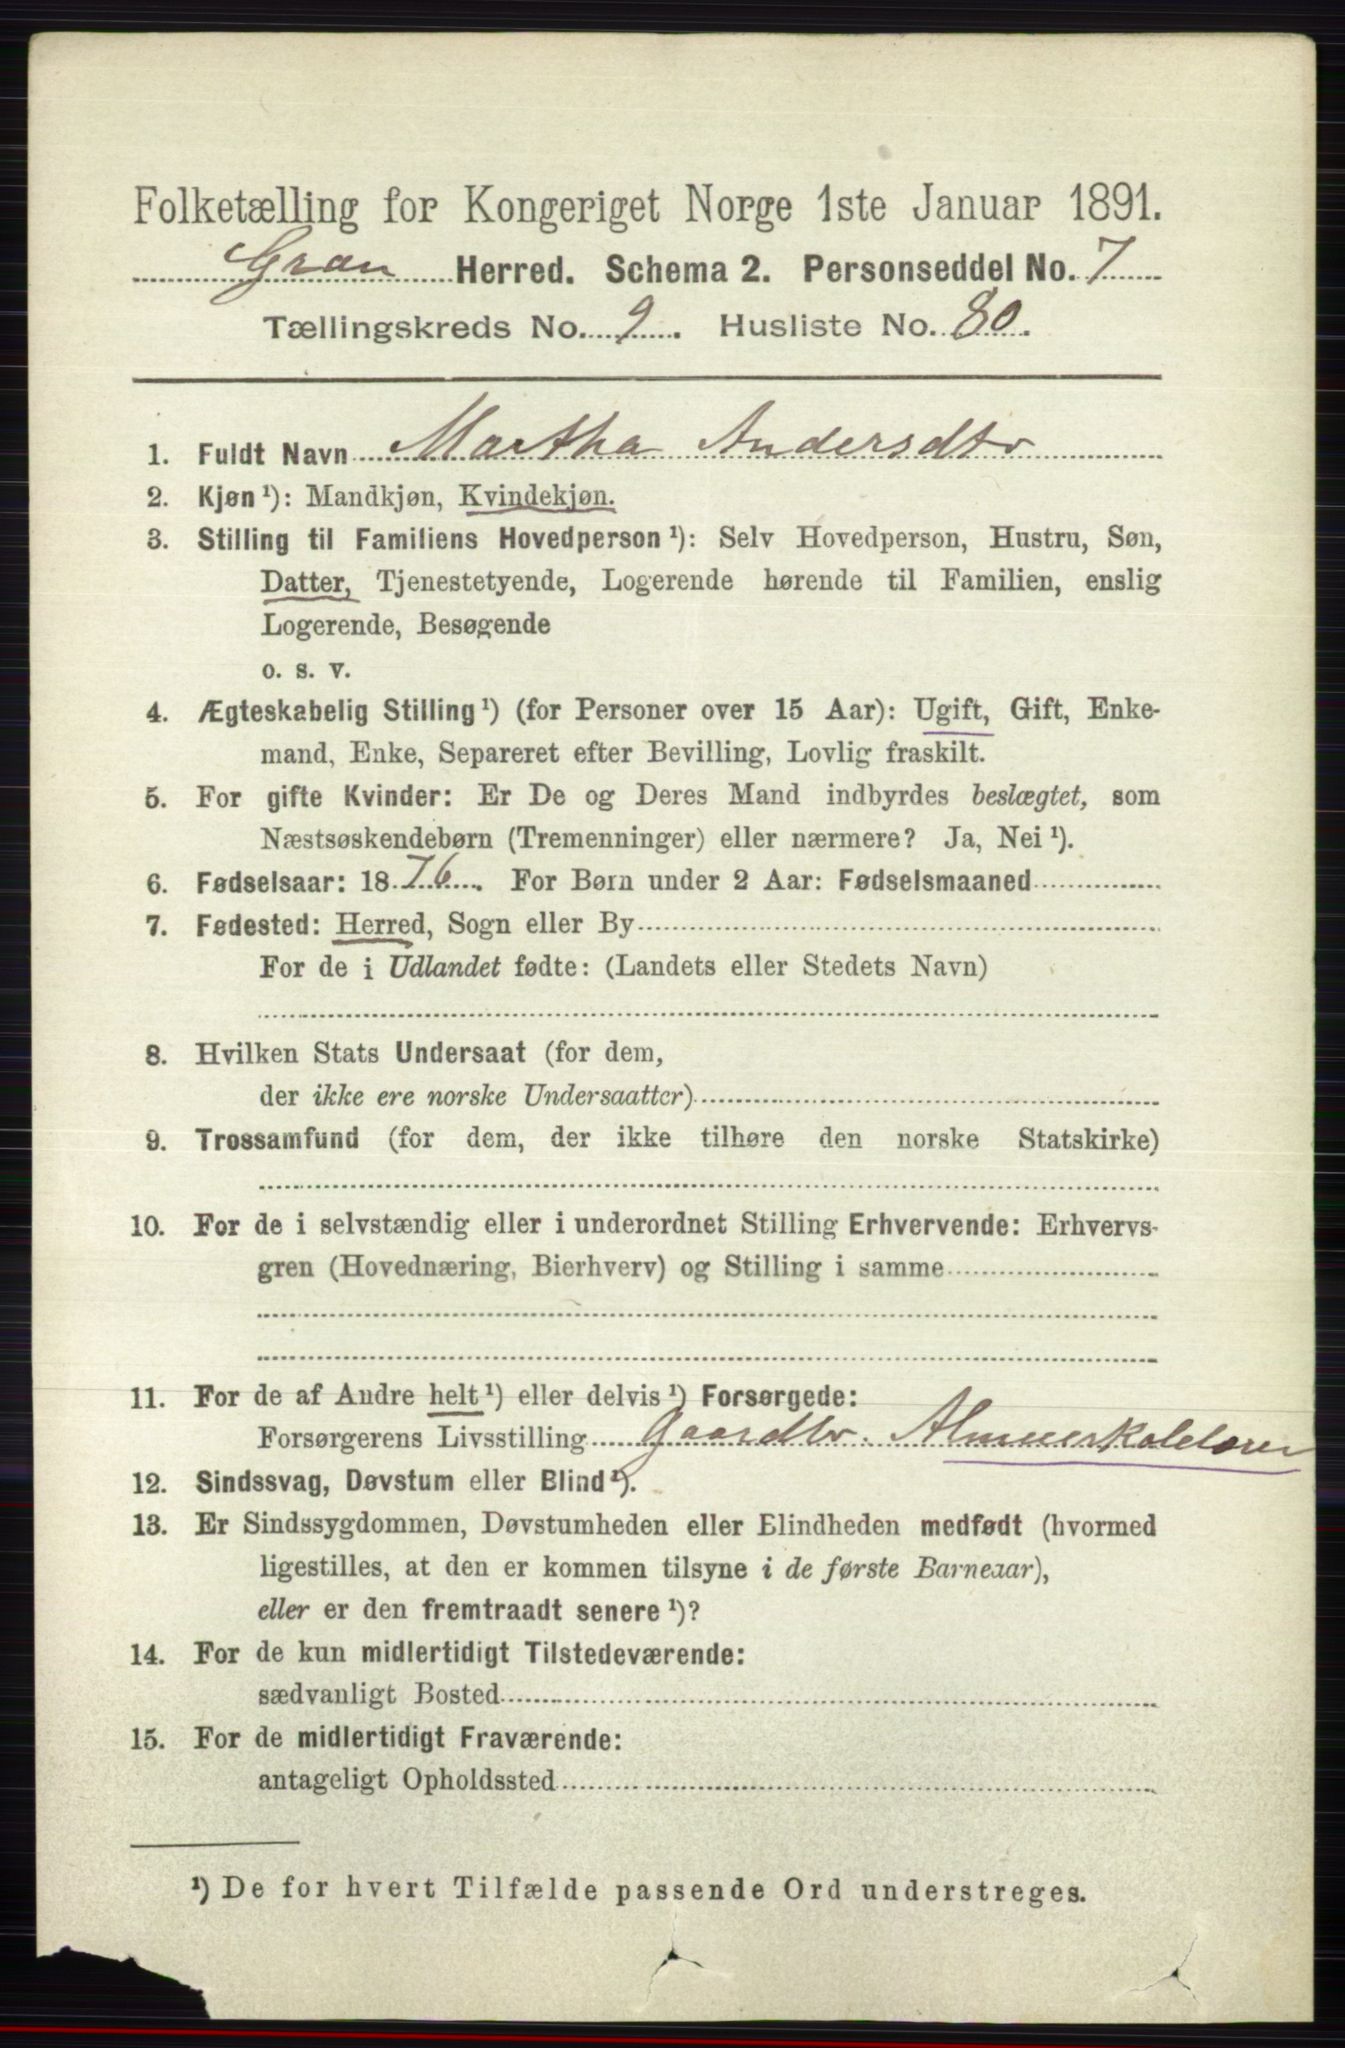 Folketælling for Kongeriget Norge 1ste Januar 1891.
Gran Herred. Schema 2. Personseddel No. 7
Tællingskreds No. 9. Husliste No. 80.
1. Fuldt Navn Martha Andersdtr
2. Kjøn ¹): Mandkjøn, Kvindekjøn.
3. Stilling til Familiens Hovedperson ¹): Selv Hovedperson, Hustru, Søn,
Datter, Tjenestetyende, Logerende hørende til Familien, enslig
Logerende, Besøgende
o. s. v.
4. Ægteskabelig Stilling ¹) (for Personer over 15 Aar): Ugift, Gift, Enke-
mand, Enke, Separeret efter Bevilling, Lovlig fraskilt.
5. For gifte Kvinder: Er De og Deres Mand indbyrdes beslægtet, som
Næstsøskendebørn (Tremenninger) eller nærmere? Ja, Nei ¹).
6. Fødselsaar: 1876. For Børn under 2 Aar: Fødselsmaaned
7. Fødested: Herred, Sogn eller By
For de i Udlandet fødte: (Landets eller Stedets Navn)
8. Hvilken Stats Undersaat (for dem,
der ikke ere norske Undersaatter)
9. Trossamfund (for dem, der ikke tilhøre den norske Statskirke)
10. For de i selvstændig eller i underordnet Stilling Erhvervende: Erhvervs-
gren (Hovednæring, Bierhverv) og Stilling i samme
11. For de af Andre helt ¹) eller delvis ¹) Forsørgede:
Forsørgerens Livsstilling Gaardbr.
12. Sindssvag, Døvstum eller Blind ¹).
13. Er Sindssygdommen, Døvstumheden eller Blindheden medfødt (hvormed
ligestilles, at den er kommen tilsyne i de første Barneaar),
eller er den fremtraadt senere ¹)?
14. For de kun midlertidigt Tilstedeværende:
sædvanligt Bosted
15. For de midlertidigt Fraværende:
antageligt Opholdssted
¹) De for hvert Tilfælde passende Ord understreges.